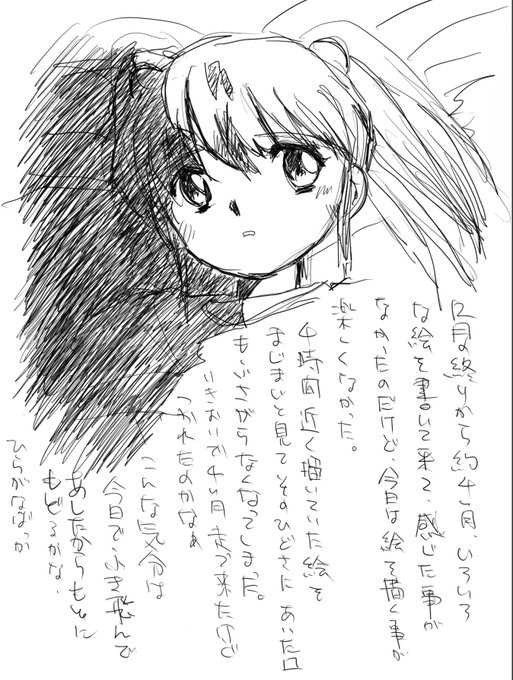 12月の終りから約4ヶ月、いろいろ
な絵を書いて来て、感じた事が
なかったのだけど、今日は絵を描く事が
楽しくなかった。
4時間近く描いていた絵を
まじまじと見てそのひどさにあいた口
もふさがらなくなってしまった。
いきおいで4ヶ月走って来たけど
つかれたのかなぁ
こんな気分は
今日で、ふき飛んで
あしたからもとに
もどるかな。
ひらがなばっか